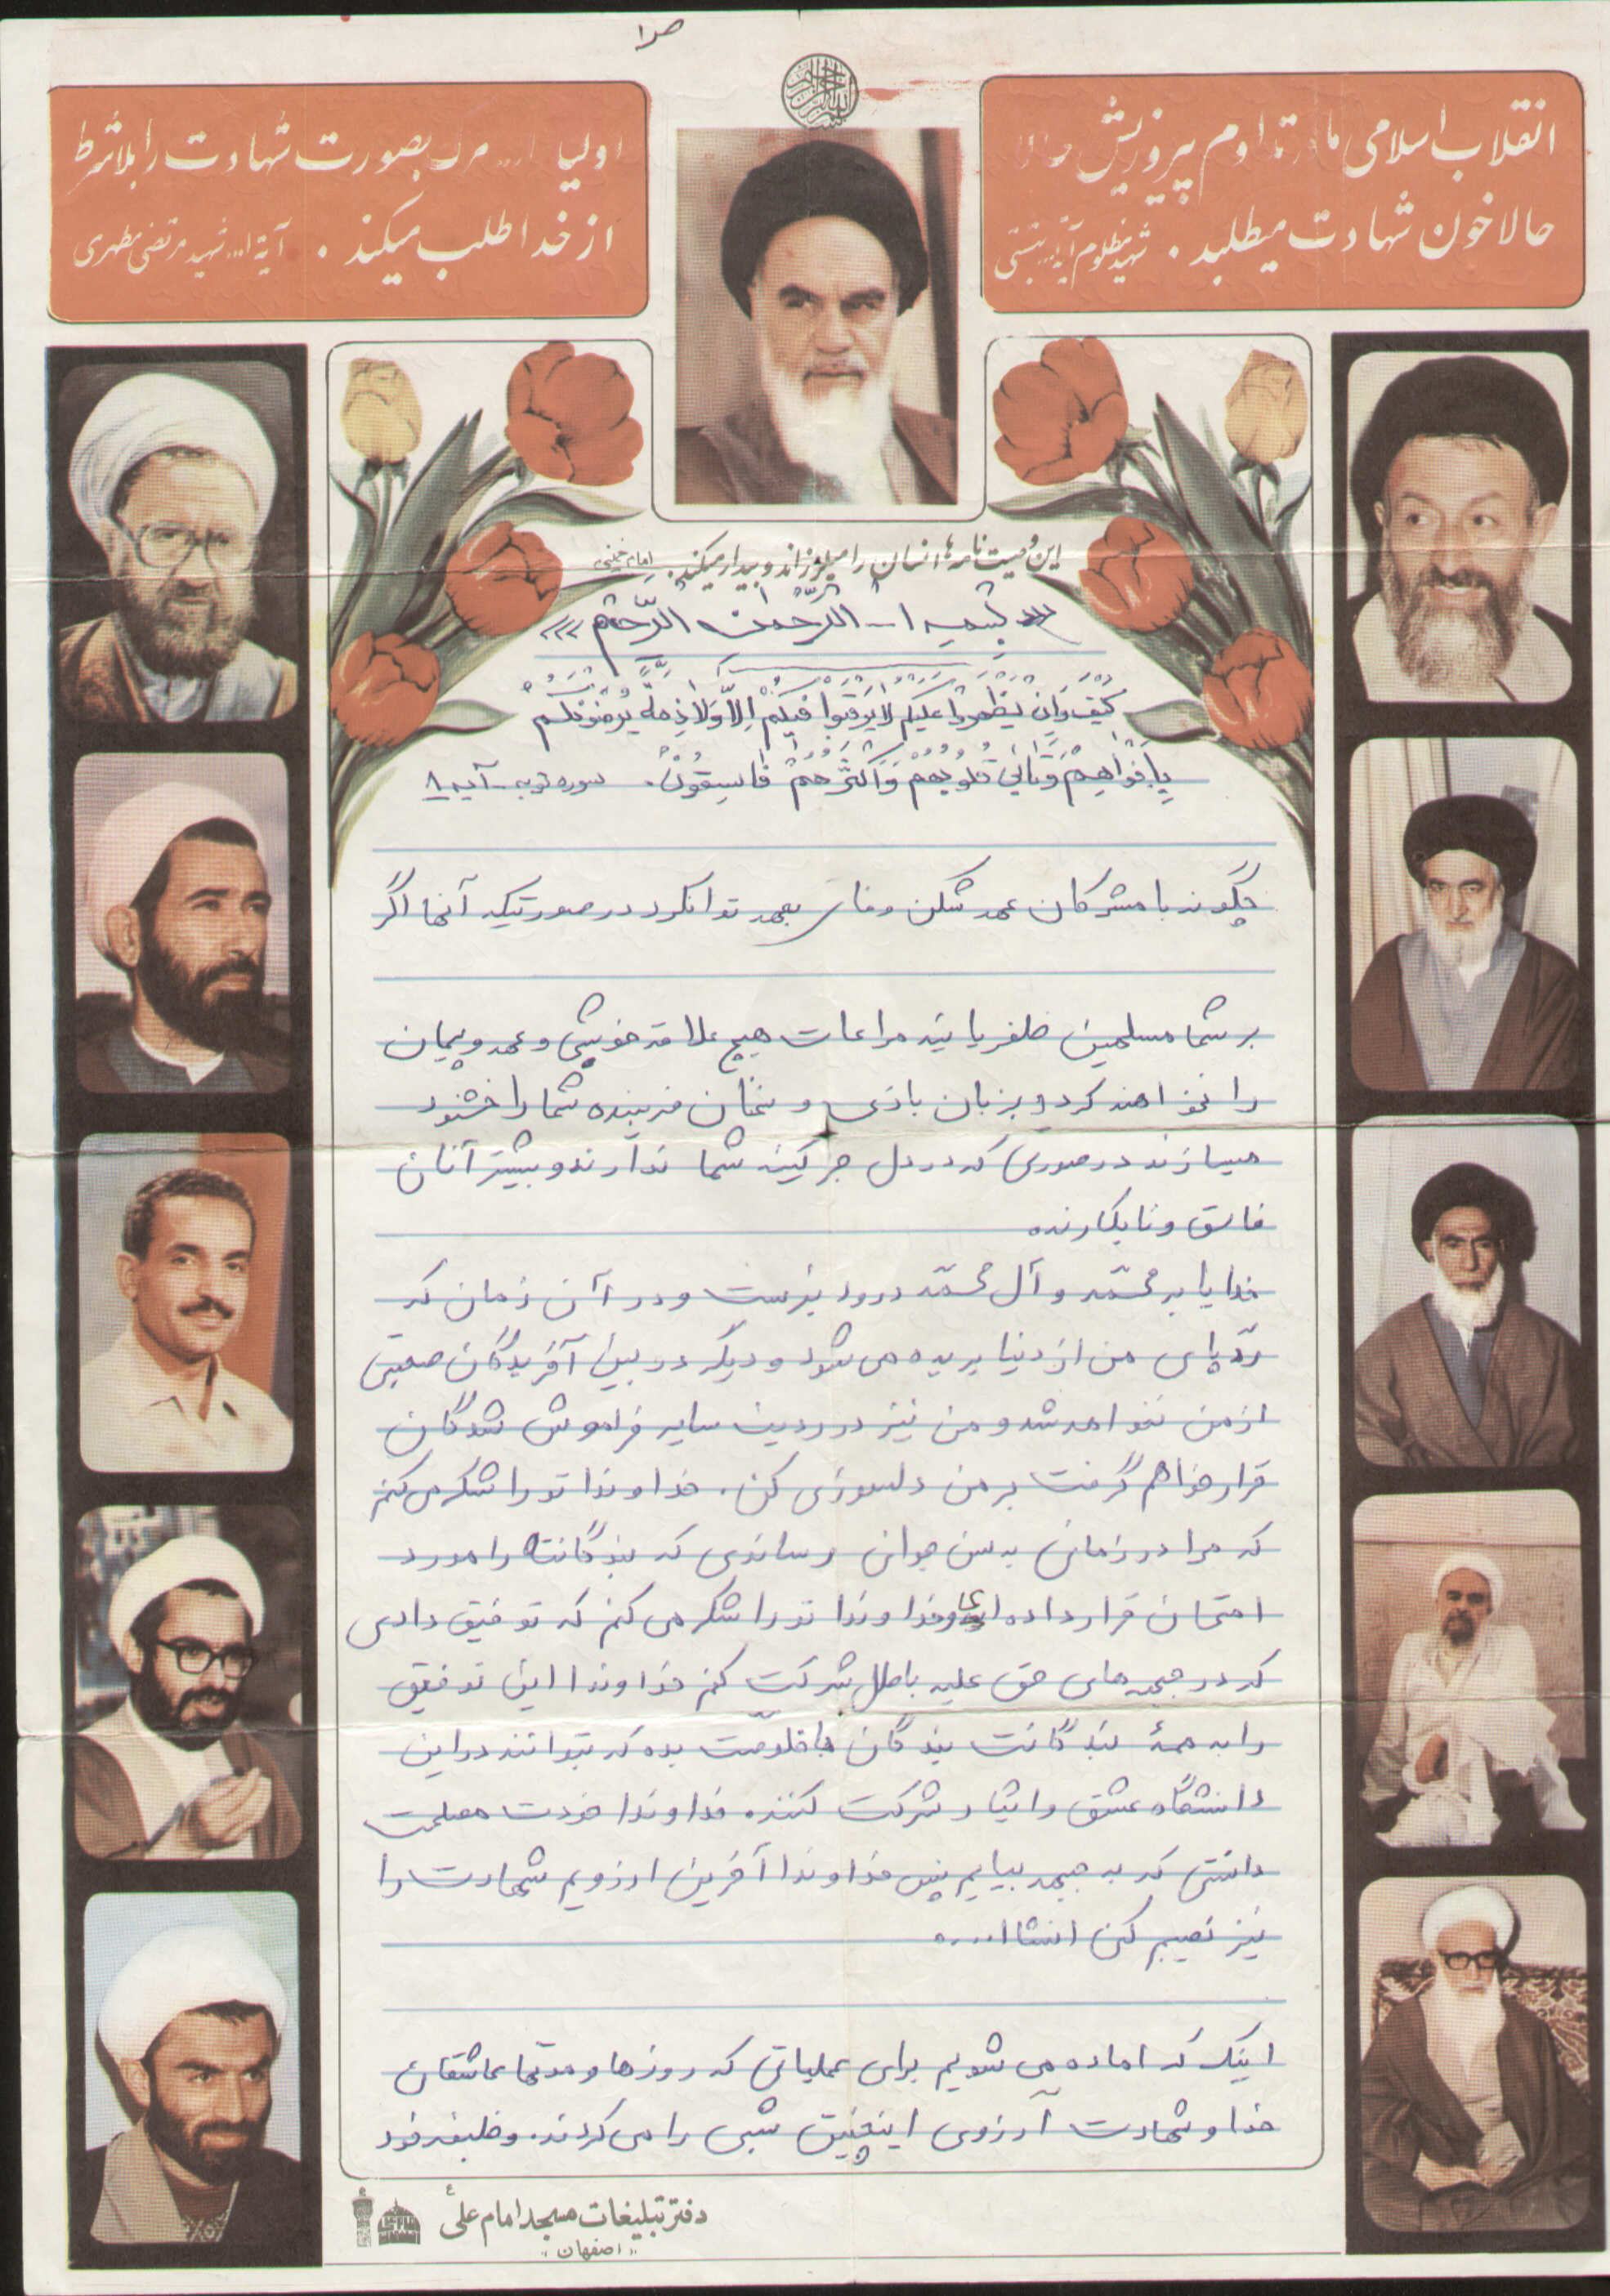 ص۱
انقلاب اسلامی ما در تداوم پیروزیش حالا
حالا خون شهادت میطلبد . شهید مظلوم آیة... بهشتی
اولیا ا... مرگ بصورت شهادت را بلاشرط
از خدا طلب میکند . آیة ا... شهید مرتضی مطهری
این وصیت نامه‌ها انسان را میلرزاند و بیدار میکند. امام خمینی
«بسمه ا... الرّحمن الرّحیم»
كَیْفَ وَاِن یَظْهَروُا عَلَیكُم لا یَرقَبوا فیكُم اِلّاً وَلا ذِمَةً یُرضونَكُم
بِاَفْواهِهِمْ وَتَأبی قُلُوبُهُم وَاَكْثَرُهُمْ فاسِقُونَ. سوره توبه - آیه ۸
چگونه با مشرکان عهد شکن وفای بعهد توانکرد در صورتیکه آنها اگر
بر شما مسلمین ظفر یابند مراعات هیچ علاقه خویشی و عهد و پیمان
را نخواهند کرد و بزبان بازی و سخنان فریبنده شما را خشنود
میسازند در صورتی که در دل جز کینه شما ندارند و بیشتر آنان
فاسق و نابکارند
خدایا بر محمّد و آل محمّد درود بفرست و در آن زمان که
ردّ پای من از دنیا بریده می شود و دیگر در بین آفریدگان صحبتی
از من نخواهد شد و من نیز در ردیف سایر فراموش شدگان
قرار خواهم گرفت بر من دلسوزی کن. خداوندا تو را شکر می کنم
که مرا در زمانی به سن جوانی رساندی که بندگانت را مورد
امتحان قرار داده ای و خداوندا تو را شکر می کنم که توفیق دادی
که در جبهه های حق علیه باطل شرکت کنم خداوندا این توفیق
را به همهٔ بندگانت بندگان با خلوصت بده که بتوانند در این
دانشگاه عشق و ایثار شرکت کنند. خداوندا خودت مصلحت
دانستی که به جبهه بیایم پس خداوندا آخرین ارزویم شهادت را
نیز نصیبم کن انشاا...
اینک که اماده می شویم برای عملیاتی که روزها و مدتها عاشقان
خدا و شهادت آرزوی اینچنین شبی را می کردند. وظیفه خود
دفتر تبلیغات مسجد امام علی ع
«اصفهان»